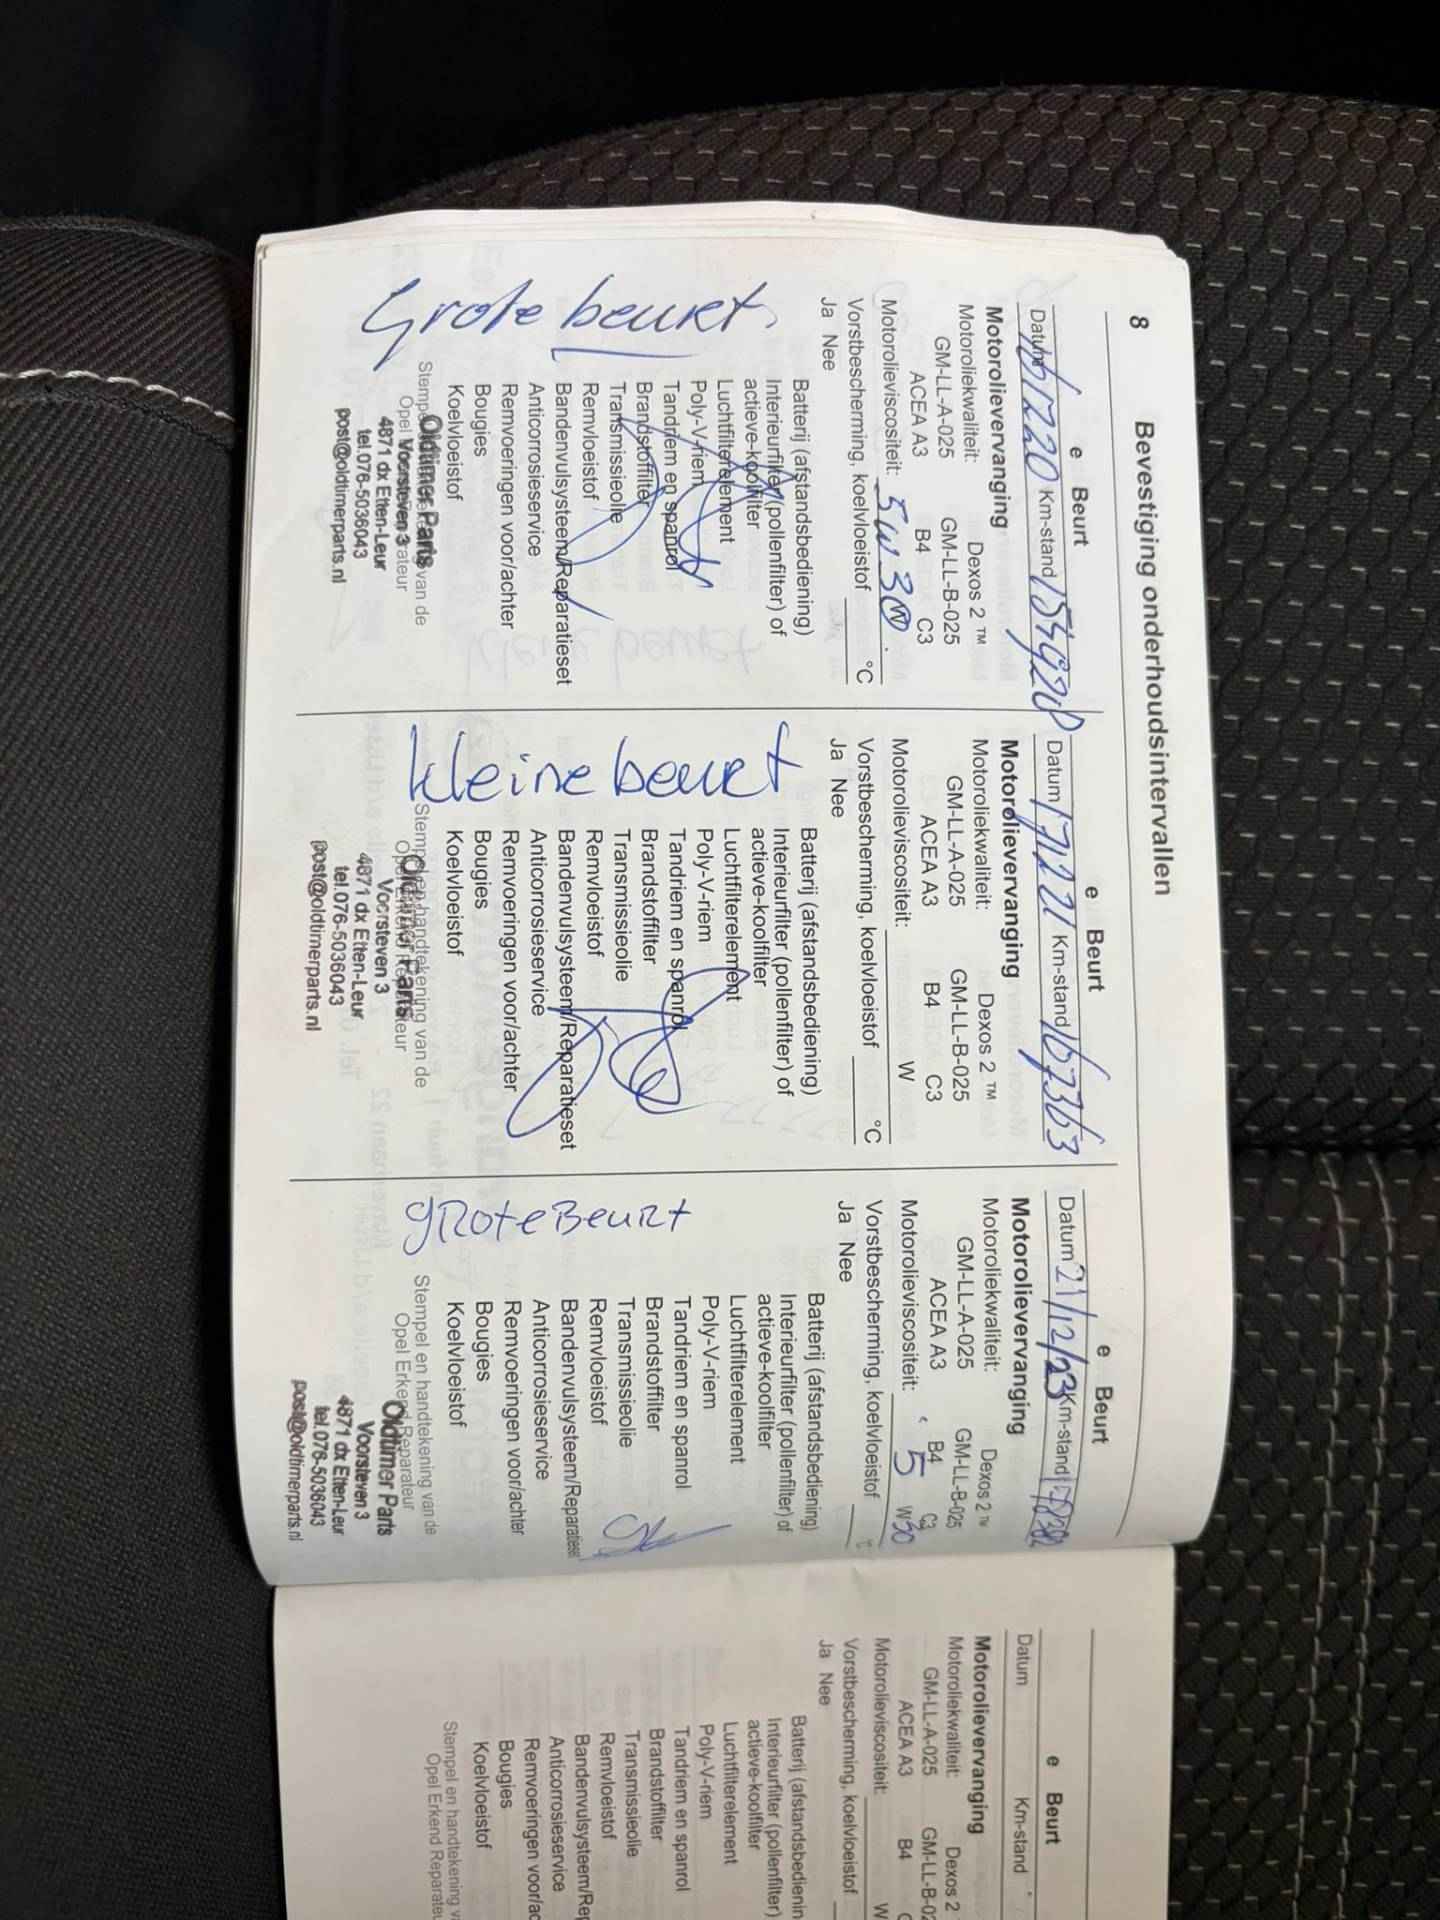 8
Bevestiging onderhoudsintervallen
e Beurt
Datum Km-stand
Motorolievervanging
Motoroliekwaliteit: Dexos 2 ™
GM-LL-A-025 GM-LL-B-025
ACEA A3 B4 C3
Motorolieviscositeit: 5W30
Vorstbescherming, koelvloeistof °C
Ja Nee
Batterij (afstandsbediening)
Interieurfilter (pollenfilter) of
actieve-koolfilter
Luchtfilterelement
Poly-V-riem
Tandriem en spanrol
Brandstoffilter
Transmissieolie
Remvloeistof
Bandenvulsysteem/Reparatieset
Anticorrosieservice
Remvoeringen voor/achter
Bougies
Koelvloeistof
Grote beurt
Stempel en handtekening van de
Opel Erkend Reparateur
Oldtimer Parts
Voorsteven 3
4871 dx Etten-Leur
tel.076-5036043
post@oldtimerparts.nl
e Beurt
Datum Km-stand 167363
Motorolievervanging
Motoroliekwaliteit: Dexos 2 ™
GM-LL-A-025 GM-LL-B-025
ACEA A3 B4 C3
Motorolieviscositeit: W
Vorstbescherming, koelvloeistof °C
Ja Nee
Batterij (afstandsbediening)
Interieurfilter (pollenfilter) of
actieve-koolfilter
Luchtfilterelement
Poly-V-riem
Tandriem en spanrol
Brandstoffilter
Transmissieolie
Remvloeistof
Bandenvulsysteem/Reparatieset
Anticorrosieservice
Remvoeringen voor/achter
Bougies
Koelvloeistof
kleine beurt
Stempel en handtekening van de
Opel Erkend Reparateur
Oldtimer Parts
Voorsteven 3
4871 dx Etten-Leur
tel.076-5036043
post@oldtimerparts.nl
e Beurt
Datum 21/12/23 Km-stand
Motorolievervanging
Motoroliekwaliteit: Dexos 2 ™
GM-LL-A-025 GM-LL-B-025
ACEA A3 B4 C3
Motorolieviscositeit: 5 W30
Vorstbescherming, koelvloeistof °C
Ja Nee
Batterij (afstandsbediening)
Interieurfilter (pollenfilter) of
actieve-koolfilter
Luchtfilterelement
Poly-V-riem
Tandriem en spanrol
Brandstoffilter
Transmissieolie
Remvloeistof
Bandenvulsysteem/Reparatieset
Anticorrosieservice
Remvoeringen voor/achter
Bougies
Koelvloeistof
gROte BeuRt
Stempel en handtekening van de
Opel Erkend Reparateur
Oldtimer Parts
Voorsteven 3
4871 dx Etten-Leur
tel.076-5036043
post@oldtimerparts.nl
e Beurt
Datum Km-stand
Motorolievervanging
Motoroliekwaliteit: Dexos 2
GM-LL-A-025 GM-LL-B-02
ACEA A3 B4 C
Motorolieviscositeit: W
Vorstbescherming, koelvloeistof
Ja Nee
Batterij (afstandsbedienin
Interieurfilter (pollenfilter)
actieve-koolfilter
Luchtfilterelement
Poly-V-riem
Tandriem en spanrol
Brandstoffilter
Transmissieolie
Remvloeistof
Bandenvulsysteem/Rep
Anticorrosieservice
Remvoeringen voor/ac
Bougies
Koelvloeistof
Stempel en handtekening v
Opel Erkend Reparateu